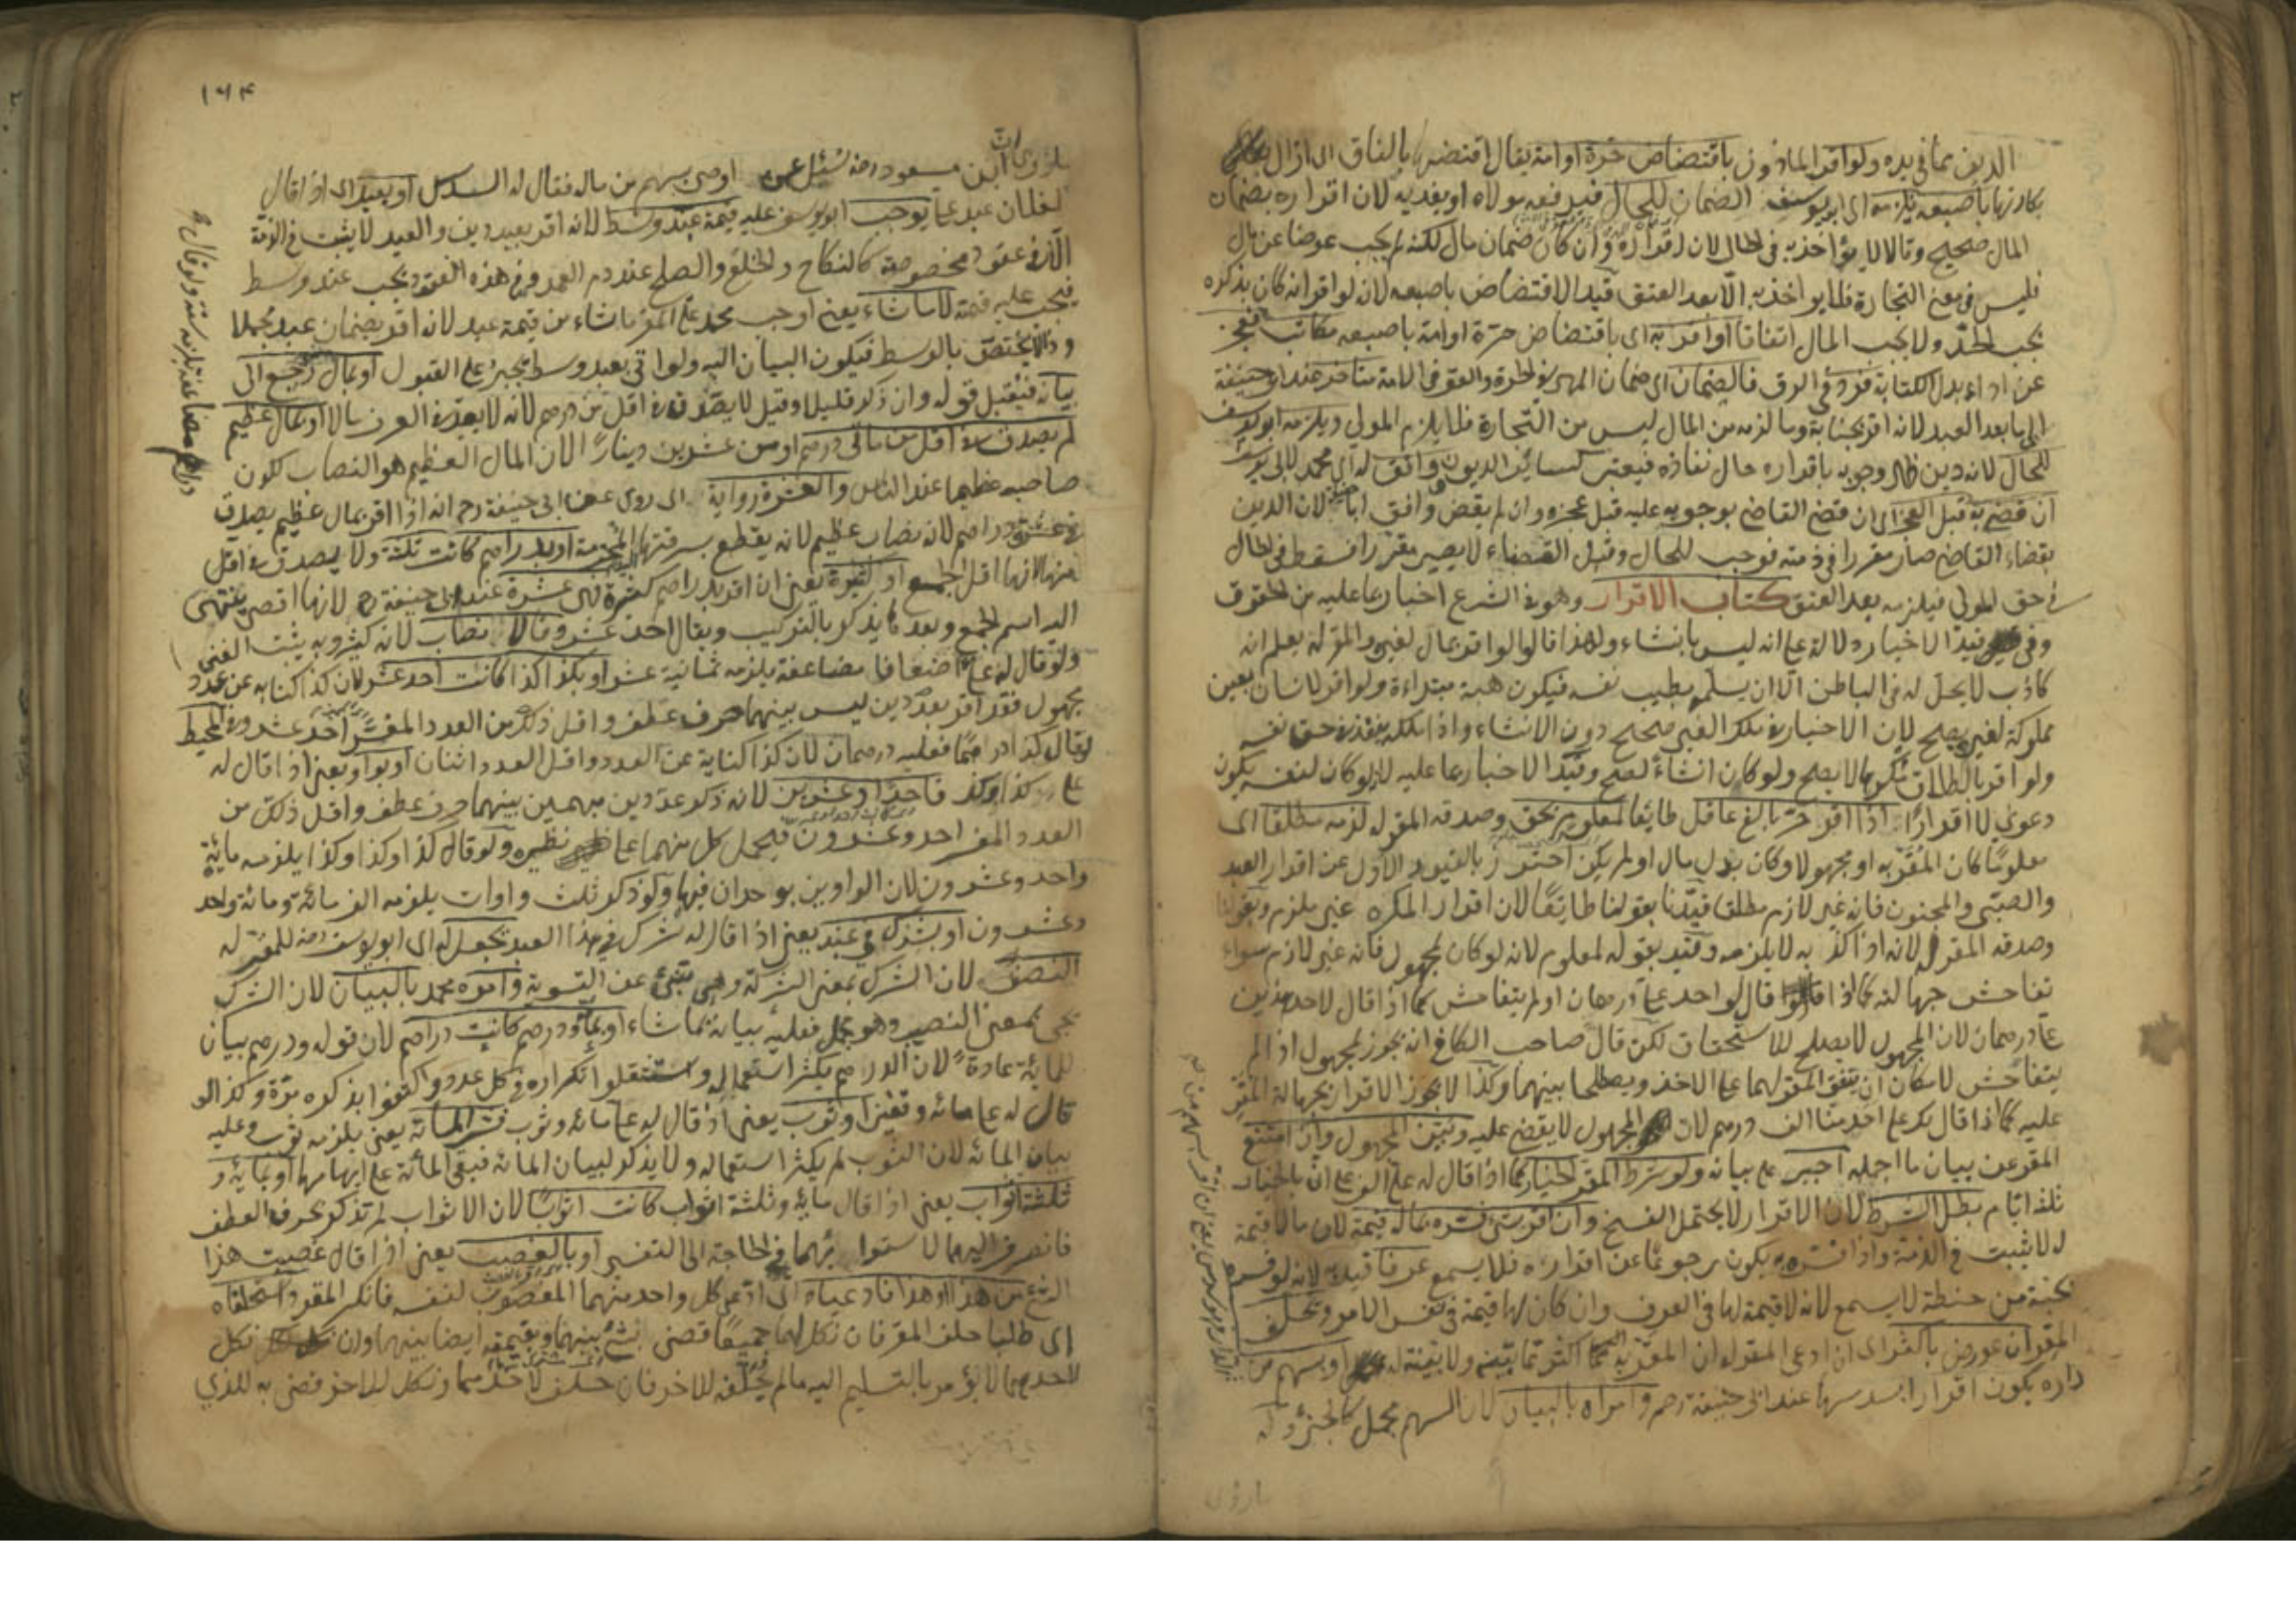 الدين بما في يده ولو اقر الماذون باقتضاض حرة او امة يقال اقتضها بالقاف اي ازال
بكارتها باصبعه يلزمه اي ابو يوسف الضمان للحال فيدفعه مولاه او يفديه لان اقراره بضمان
المال صحيح وقالا لا يؤاخذ به في الحال لان اقراره وان كان ضمان مال لكنه لم يجب عوضا عن مال
فليس في معنى التجارة فلا يؤاخذ به الا بعد العتق قيد الاقتضاض باصبعه لانه لو اقر انه كان بذكره
يجب الحد ولا يجب المال اتفاقا او اقر به اي باقتضاض حرة او امة باصبعه مكاتب فعجز
عن اداء بدل الكتابة فرد في الرق فالضمان اي ضمان المهر في الحرة والعقر في الامة متاخر عند ابو حنيفة
الى ما بعد العتق لانه اقر بجناية وما لزمه من المال ليس من التجارة فلا يلزم المولى ويلزمه ابو يوسف
للحال لانه دين ظهر وجوبه باقراره حال نفاذه فيعتبر كسائر الديون وافق له اي محمد لابي يوسف
ان قضي به قبل العجز اي ان قضى القاضي بوجوبه عليه قبل عجزه وان لم يقض وافق ابا لان الدين
بقضاء القاضي صار مقررا في ذمته فوجب للحال وقبل القضاء لا يصير مقررا فسقط في الحال
في حق المولى فيلزمه بعد العتق كتاب الاقرار وهو في الشرع اخبار بما عليه من الحقوق
وفي قيد الاخبار دلالة على انه ليس بانشاء ولهذا قالوا لو اقر بمال لغيره والمقر له يعلم انه
كاذب لا يحل له في الباطن الا ان يسلمه بطيب نفسه فيكون هبة مبتداة ولو اقر لانسان بعين
مملوكة لغيره يصح لان الاخبار في ملك الغير صحيح دون الانشاء واذا ملكه ينفذ في حق نفسه
ولو اقر بالطلاق مكرها لا يصح ولو كان انشاء لصح وقيد الاخبار بما عليه لانه لو كان لنفسه يكون
دعوى لا اقرارا اذا اقر حر بالغ عاقل طائعا لمعلوم بحق وصدقه المقر له لزمه مطلقا اي
معلوما كان المقر به او مجهولا وكان بدل مال او لم يكن احترز بالقيود الاول عن اقرار العبد
والصبي والمجنون فانه غير لازم مطلقا قيدنا بقولنا طائعا لان اقرار المكره غير ملزم وبقولنا
وصدقه المقر له لانه اذا كذبه لا يلزمه وقيد بقوله لمعلوم لانه لو كان لمجهول فانه غير لازم سواء
تفاحش جهالته كما اذا قال لواحد علي درهمان او لم يتفاحش كما اذا قال لاحد هذين
علي درهمان لان المجهول لا يصلح للاستحقاق لكن قال صاحب الكافي انه يجوز لمجهول اذا لم
يتفاحش لامكان ان يتفق المقر لهما على الاخذ ويصطلحا بينهما وكذا لا يجوز الاقرار بجهالة المقر
عليه كما اذا قال لك على احدنا الف درهم لان المجهول لا يقضى عليه ويبين المجهول وان امتنع
المقر عن بيان ما اجمله اجبر على بيانه ولو شرط المقر الخيار كما اذا قال له علي الف على اني بالخيار
ثلثة ايام بطل الشرط لان الاقرار لا يحتمل الفسخ وان اقر بشئ فسره بما له قيمة لان ما لا قيمة
له لا يثبت في الذمة واذا فسره به يكون رجوعا عن اقراره فلا يسمع عرفا قيد به لانه لو فسره
بحبة من حنطة لا يسمع لانه لا قيمة لها في العرف وان كان لها قيمة في نفس الامر ويحلف
المقر ان عورض باكثر اي ان ادعى المقر له ان المقر به اكثر مما بينه ولا بينة له او بسهم من
داره يكون اقرارا بسدسها عند ابي حنيفة رحم وامراه بالبيان لان السهم مجمل كالجزؤ وله
ما روى
١٦٤
ما روى ان ابن مسعود رضه سئل عمن اوصى بسهم من ماله فقال له السدس او بعبد اي اذا قال
لفلان عبد علي يوجب ابو يوسف عليه قيمة عبد وسط لانه اقر بعبد دين والعبد لا يثبت في الذمة
الا في عقود مخصوصة كالنكاح والخلع والصلح عن دم العمد وفي هذه العقود يجب عبد وسط
فيجب عليه قيمته لا ما شاء يعني اوجب محمد على المقر ما شاء من قيمة عبد لانه اقر بضمان عبد مجملا
وذا لا يختص بالوسط فيكون البيان اليه ولو اتى بعبد وسط يجبر على القبول او بمال رجع الى
بيانه فيقبل قوله وان ذكر قليلا وقيل لا يصدق في اقل من درهم لانه لا يعد في العرف مالا او بمال عظيم
لم يصدق في اقل من مائتي درهم او من عشرين دينارا لان المال العظيم هو النصاب لكون
صاحبه عظيما عند الناس والعشرة رواية اي روى عن ابي حنيفة رحم انه اذا اقر بمال عظيم يصدق
في عشرة دراهم لانه نصاب عظيم لانه يقطع بسرقتها او بدراهم كانت ثلثة ولا يصدق في اقل
منها لانها اقل الجمع او كثيرة يعني ان اقر بدراهم كثيرة فهي عشرة عند ابي حنيفة رح لانها اقصى ينتهى
اليه اسم الجمع وبعده يذكر بالتركيب ويقال احد عشر وقالا نصاب لانه كثير وبه يثبت الغنى
ولو قال له علي اضعافا مضاعفة يلزمه ثمانية عشر او بكذا كذا كانت احد عشر لان كذا كناية عن عدد
مجهول فقد اقر بعددين ليس بينهما حرف عطف واقل ذلك من العدد المفسر احد عشر وفي المحيط
لو قال كذا درهما فعليه درهمان لان كذا كناية عن العدد واقل العدد اثنان او بواو يعني اذا قال له
علي كذا وكذا فاحدا وعشرين لانه ذكر عددين مبهمين بينهما حرف عطف واقل ذلك من
العدد المفسر احد وعشرون فيحمل كل منهما على نظيره ولو قال كذا وكذا وكذا يلزمه مائة
واحد وعشرون لان الواوين يوجدان فيها ولو ذكر ثلث واوات يلزمه الف ومائة واحد
وعشرون او بشرك في عبد يعني اذا قال له شرك في هذا العبد يجعل له اي ابو يوسف رحه للمقر له
النصف لان الشرك بمعنى الشركة وهي تنبئ عن التسوية وامره محمد بالبيان لان الشرك
يجئ بمعنى النصيب وهو مجمل فعليه بيانه بما شاء او بمائة ودرهم كانت دراهم لان قوله ودرهم بيان
للمائة عادة لان الدراهم يكثر استعماله واستثقلوا تكراره في كل عدد واكتفوا بذكره مرة وكذا لو
قال له علي مائة وقفيز او ثوب يعني اذ قال له علي مائة وثوب فسر المائة يعني يلزمه ثوب وعليه
بيان المائة لان الثوب لم يكثر استعماله ولا يذكر لبيان المائة فبقي المائة على ابهامها او بمائة و
ثلثة اثواب يعني اذا قال مائة وثلثة اثواب كانت اثوابا لان الاثواب لم تذكر بحرف العطف
فانصرف اليهما لاستوائهما في الحاجة الى التفسير او بالغصب يعني اذا قال غصبت هذا
الشئ من هذا او هذا فادعياه اي ادعى كل واحد منهما المغصوب لنفسه فانكر المقر واستحلفاه
اي طلبا حلف المقر فان نكل لهما جميعا قضي بشئ بينهما وبقيمته ايضا بينهما وان نكل
لاحدهما لا يؤمر بالتسليم اليه ما لم يحلفه للاخر فان حلف لاحدهما ونكل للاخر قضي به للذي